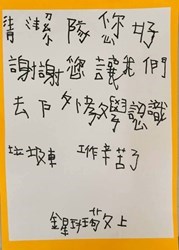 清潔隊您好
謝謝您讓我們
去戶外烤學認識
垃圾車 工作辛苦了
金星班 上